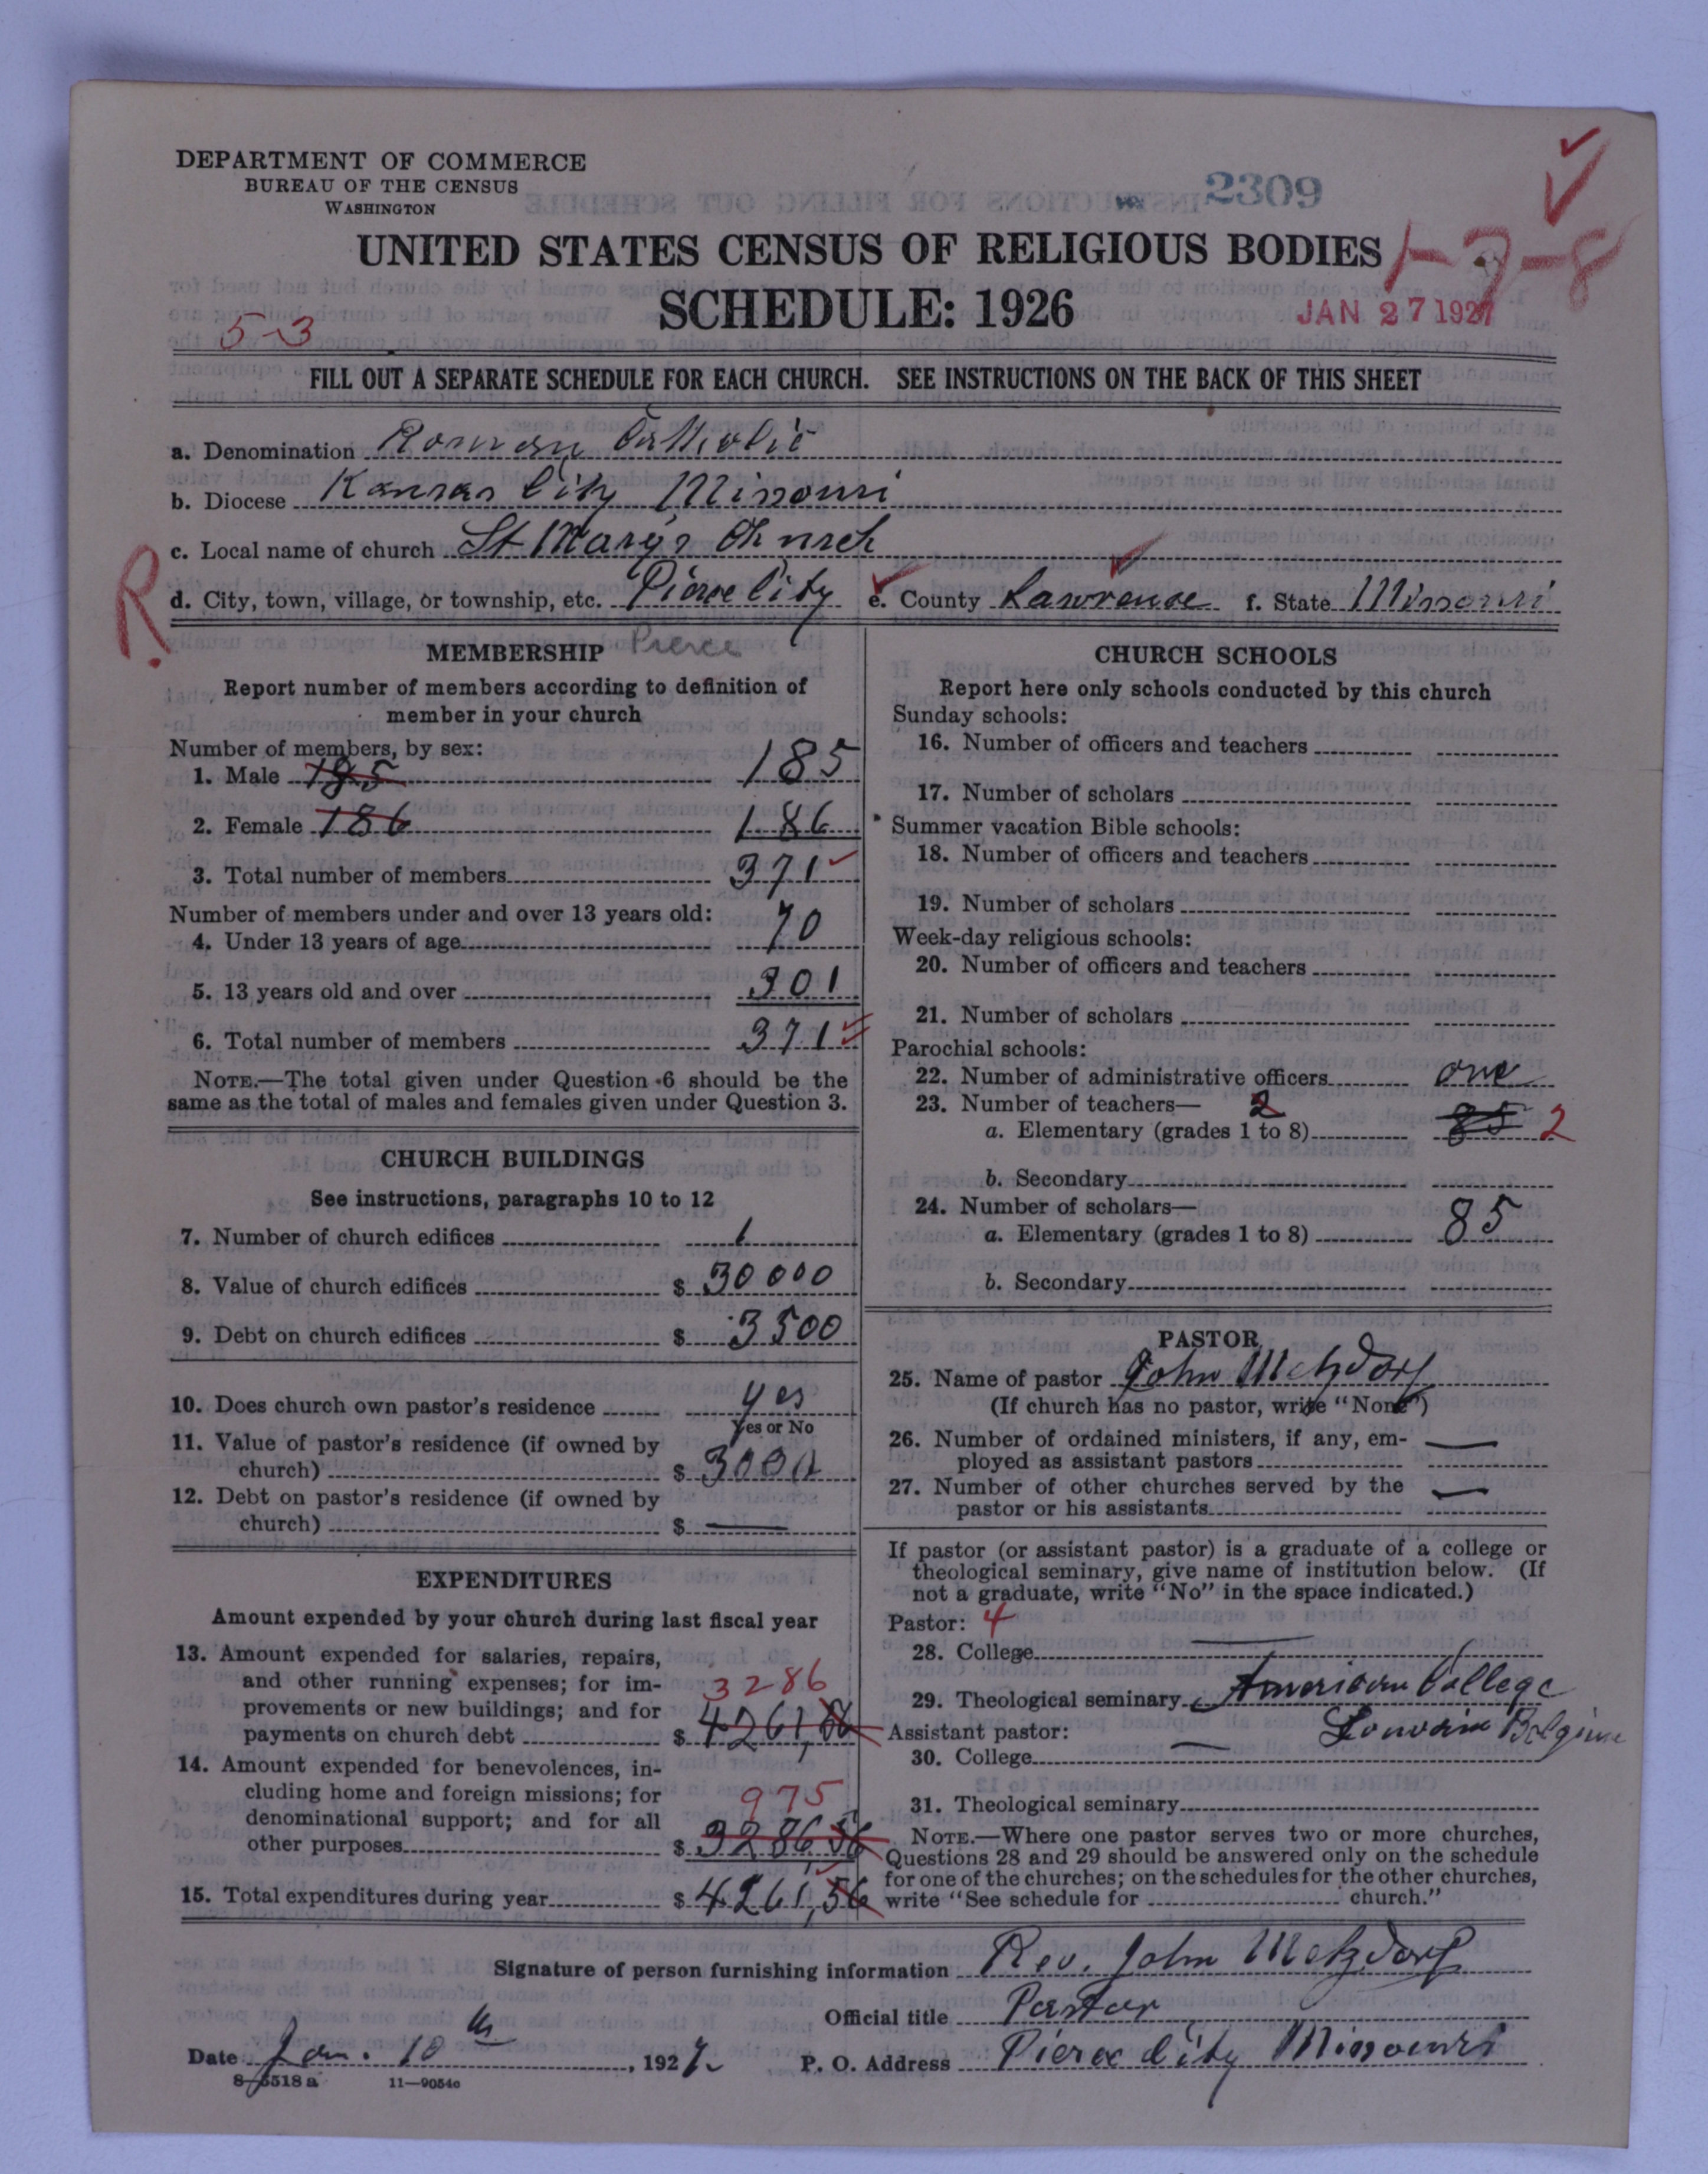 DEPARTMENT OF COMMERCE
BUREAU OF THE CENSUS
WASHINGTON
2309
UNITED STATES CENSUS OF RELIGIOUS BODIES
1-7-8
SCHEDULE: 1926
JAN 27 1927
5-3
FILL OUT A SEPARATE SCHEDULE FOR EACH CHURCH. SEE INSTRUCTIONS ON THE BACK OF THIS SHEET
a. Denomination Roman Catholic
b. Diocese Kansas City Missouri
c. Local name of church St Mary's Church
R
d. City, town, village, or township, etc. Pierce City e. County Lawrence f. State Missouri
Pierce
MEMBERSHIP
Report number of members according to definition of
member in your church
Number of members, by sex:
1. Male 185 185
2. Female 186 186
3. Total number of members 371
Number of members under and over 13 years old:
4. Under 13 years of age 70
5. 13 years old and over 301
6. Total number of members 371
NOTE.—The total given under Question 6 should be the
same as the total of males and females given under Question 3.
CHURCH BUILDINGS
See instructions, paragraphs 10 to 12
7. Number of church edifices 1
8. Value of church edifices $ 30000
9. Debt on church edifices $ 3500
10. Does church own pastor's residence yes
Yes or No
11. Value of pastor's residence (if owned by
church) $ 3000
12. Debt on pastor's residence (if owned by
church) $ —
EXPENDITURES
Amount expended by your church during last fiscal year
13. Amount expended for salaries, repairs,
and other running expenses; for im-
3286
provements or new buildings; and for
payments on church debt $ 4261,
14. Amount expended for benevolences, in-
cluding home and foreign missions; for
975
denominational support; and for all
other purposes $ 3286 56
15. Total expenditures during year $ 4261,56
CHURCH SCHOOLS
Report here only schools conducted by this church
Sunday schools:
16. Number of officers and teachers
17. Number of scholars
Summer vacation Bible schools:
18. Number of officers and teachers
19. Number of scholars
Week-day religious schools:
20. Number of officers and teachers
21. Number of scholars
Parochial schools:
22. Number of administrative officers one
23. Number of teachers— 2
a. Elementary (grades 1 to 8) 85 2
b. Secondary
24. Number of scholars—
a. Elementary (grades 1 to 8) 85
b. Secondary
PASTOR
25. Name of pastor John Metzdorf
(If church has no pastor, write "None")
26. Number of ordained ministers, if any, em- —
ployed as assistant pastors
27. Number of other churches served by the —
pastor or his assistants
If pastor (or assistant pastor) is a graduate of a college or
theological seminary, give name of institution below. (If
not a graduate, write "No" in the space indicated.)
Pastor: 4
28. College —
29. Theological seminary American College
Assistant pastor: Louvain Belgium
30. College —
31. Theological seminary
NOTE.—Where one pastor serves two or more churches,
Questions 28 and 29 should be answered only on the schedule
for one of the churches; on the schedules for the other churches,
write "See schedule for church."
Signature of person furnishing information Rev. John Metzdorf
Official title Pastor
Date Jan. 10th, 1927. P. O. Address Pierce City Missouri
8-5518 a 11—9054c